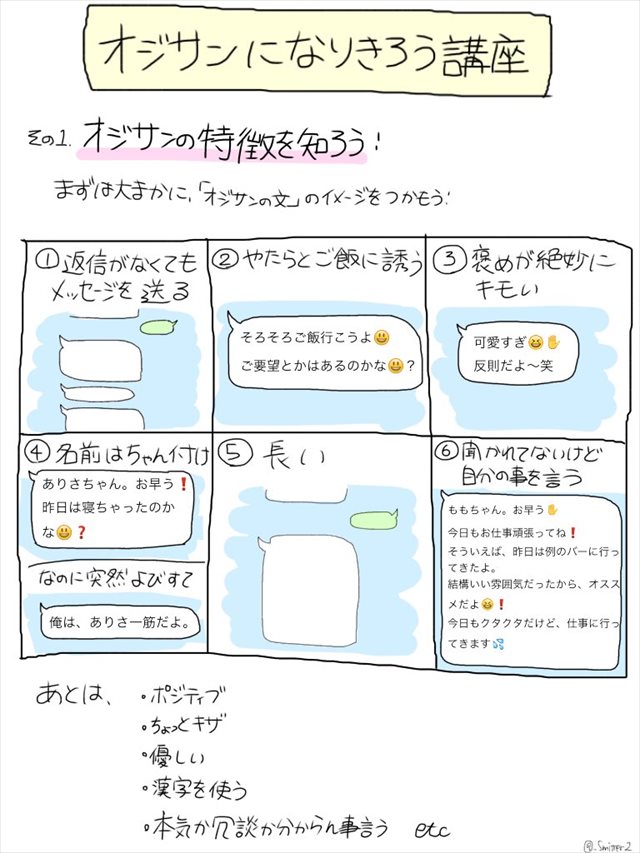 オジサンになりきろう講座
その1. オジサンの特徴を知ろう!
まずは大まかに,「オジサンの文」のイメージをつかもう!
①返信がなくても
メッセージを送る
②やたらとご飯に誘う
そろそろご飯行こうよ😃
ご要望とかはあるのかな😃?
③褒めが絶妙に
キモい
可愛すぎ😆✋
反則だよ〜笑
④名前はちゃん付け
ありさちゃん。お早う❗
昨日は寝ちゃったのか
な😃❓
なのに突然よびすて
俺は、ありさ一筋だよ。
⑤長い
⑥聞かれてないけど
自分の事を言う
ももちゃん。お早う✋
今日もお仕事頑張ってね❗
そういえば、昨日は例のバーに行っ
てきたよ。
結構いい雰囲気だったから、オスス
メだよ😆❗
今日もクタクタだけど、仕事に行っ
てきます💦
あとは、
・ポジティブ
・ちょっとキザ
・優しい
・漢字を使う
・本気か冗談か分からん事言う etc
@_Smitter2